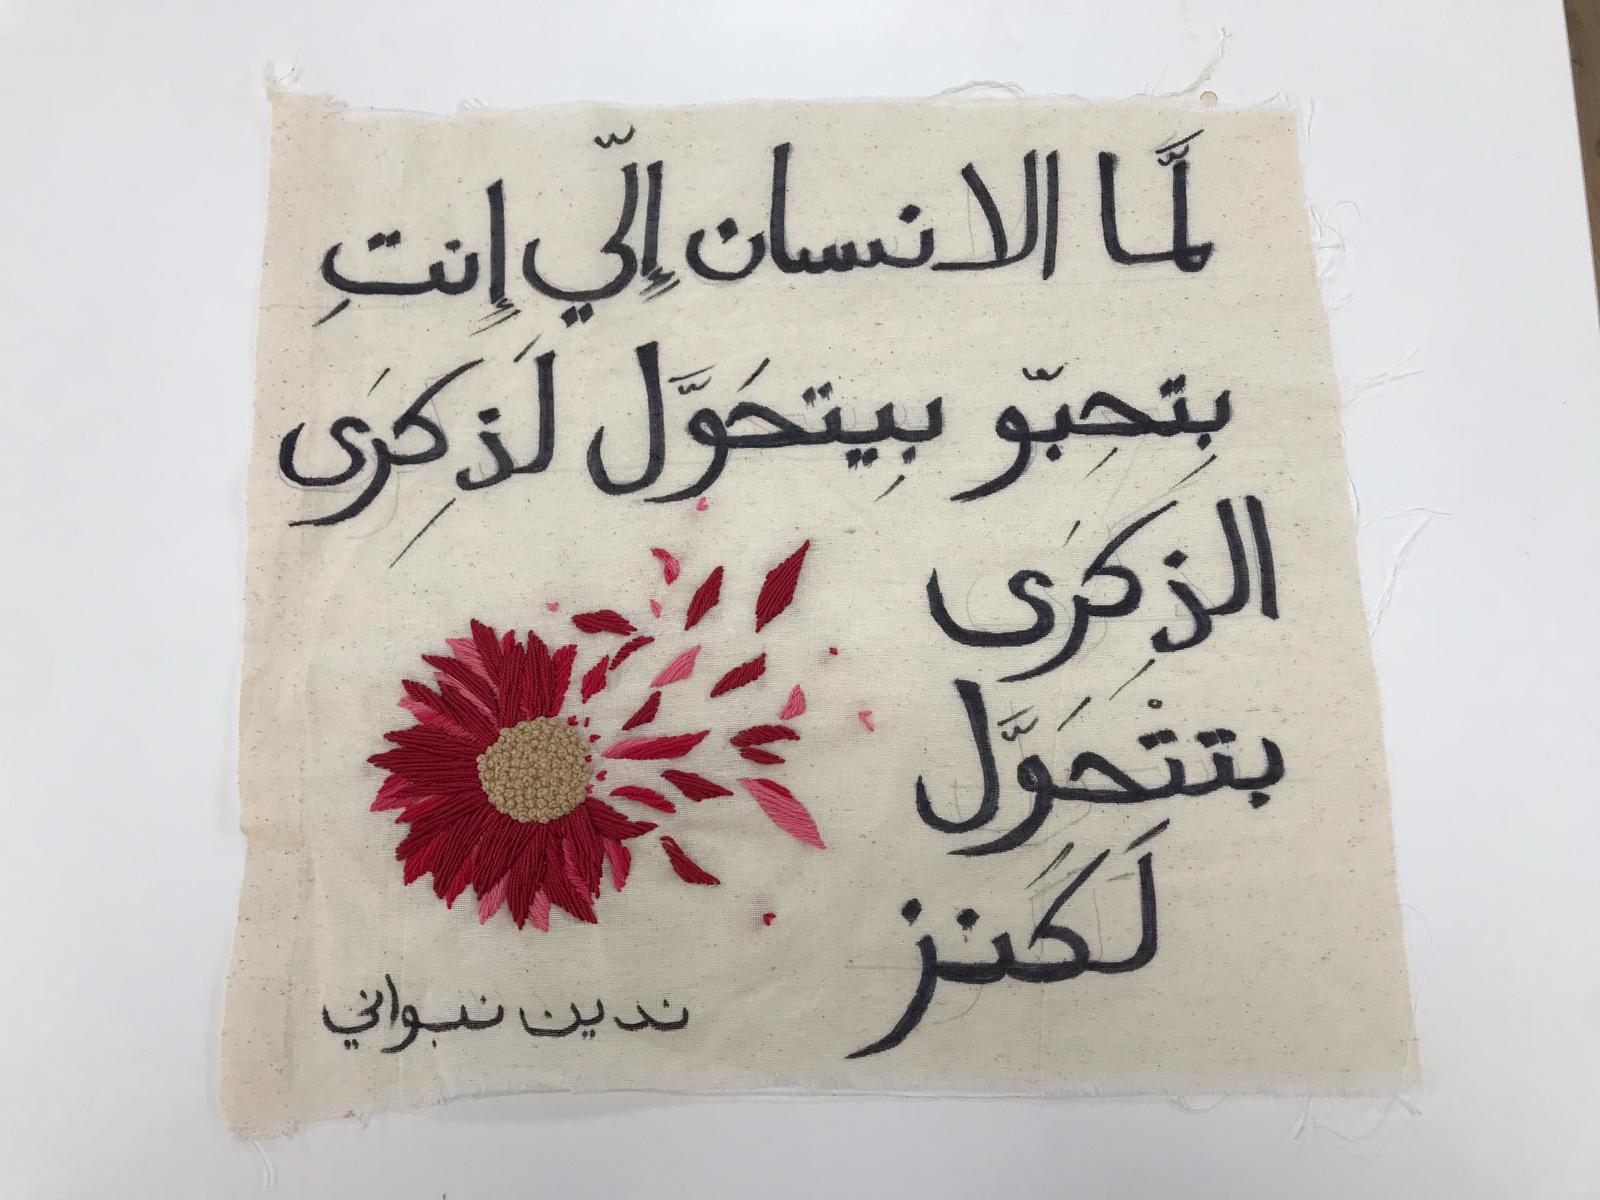 لَمَّا الانسان إِلّي إِنتِ
بِتحِبّو بِيتحَوَّل لَذِكرَى
الذِكرَى
بتتْحَوَّل
لَكَنز
ندين نبواني